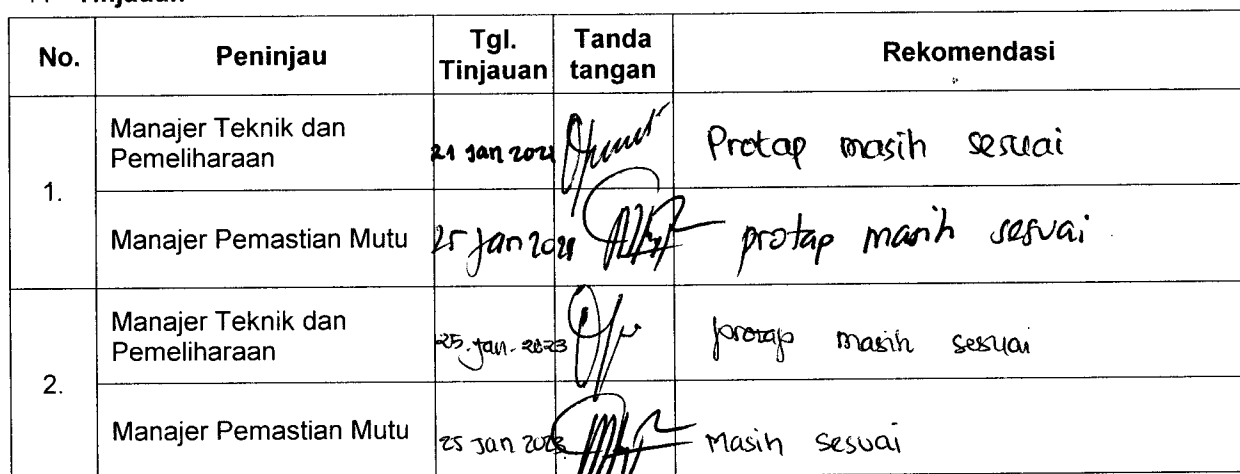 Tinjauan
No. Peninjau Tgl. Tinjauan Tanda tangan Rekomendasi
1. Manajer Teknik dan Pemeliharaan 21 Jan 2021 Protap masih sesuai
Manajer Pemastian Mutu 25 Jan 2021 protap masih sesuai
2. Manajer Teknik dan Pemeliharaan 25. Jan. 2023 protap masih sesuai
Manajer Pemastian Mutu 25 Jan 2023 Masih sesuai